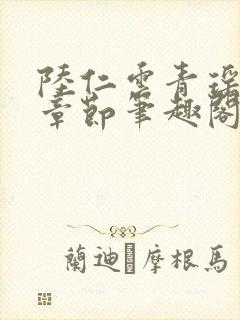 陸仁雲青瑤
章節筆趣閣
蘭迪 摩根馬